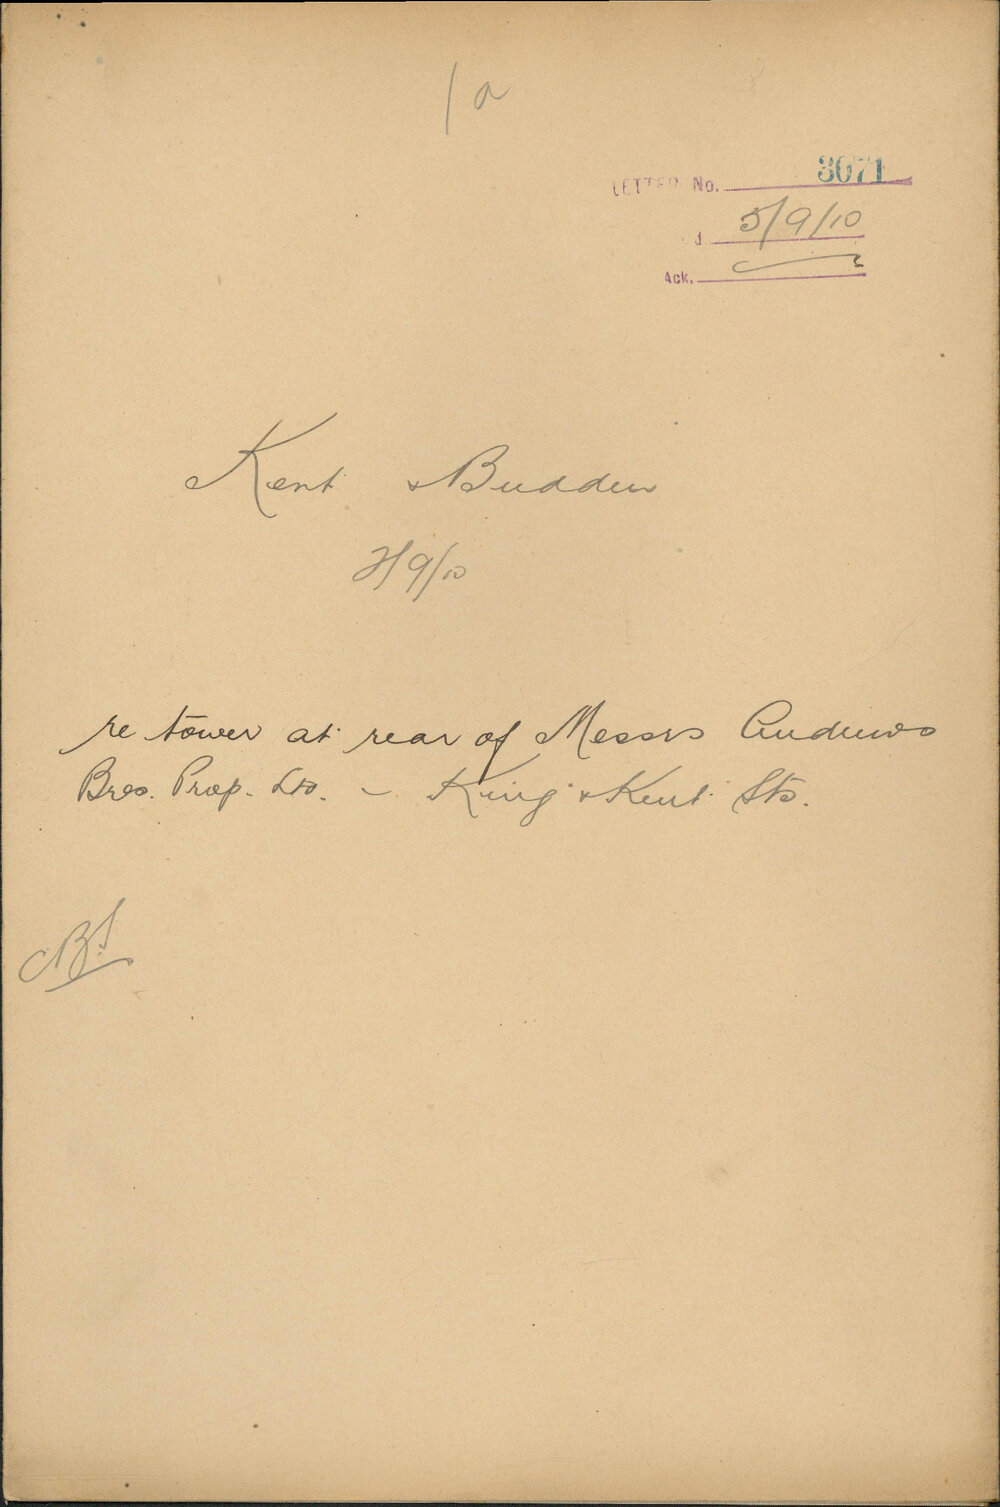 1a
LETTER No. 3071
d 5/9/10
Ack.
Kent & Budden
2/9/10
re tower at rear of Messrs Andrews
Bros. Prop. Ltd. - King & Kent Sts.
BS